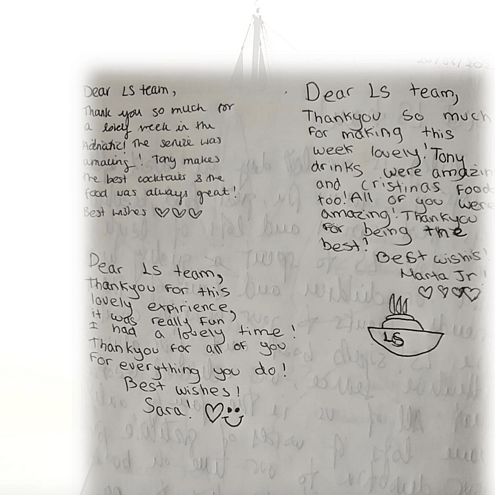 Dear LS team,
Thank you so much for
a lovely week in the
Adriatic! The service was
amazing! Tony makes
the best cocktails & the
food was always great!
Best wishes ♡♡♡
Dear LS team,
Thankyou so much
for making this
week lovely! Tony
drinks were amazin
and cristinas food
too! All of you were
amazing! Thankyou
for being the
best!
Best wishis!
Marta Jr!
♡♡♡♡
LS
Dear LS team,
Thankyou for this
lovely expirience,
it was really fun
I had a lovely time!
Thankyou for all of you
For everything you do!
Best wishes!
Sara! ♡